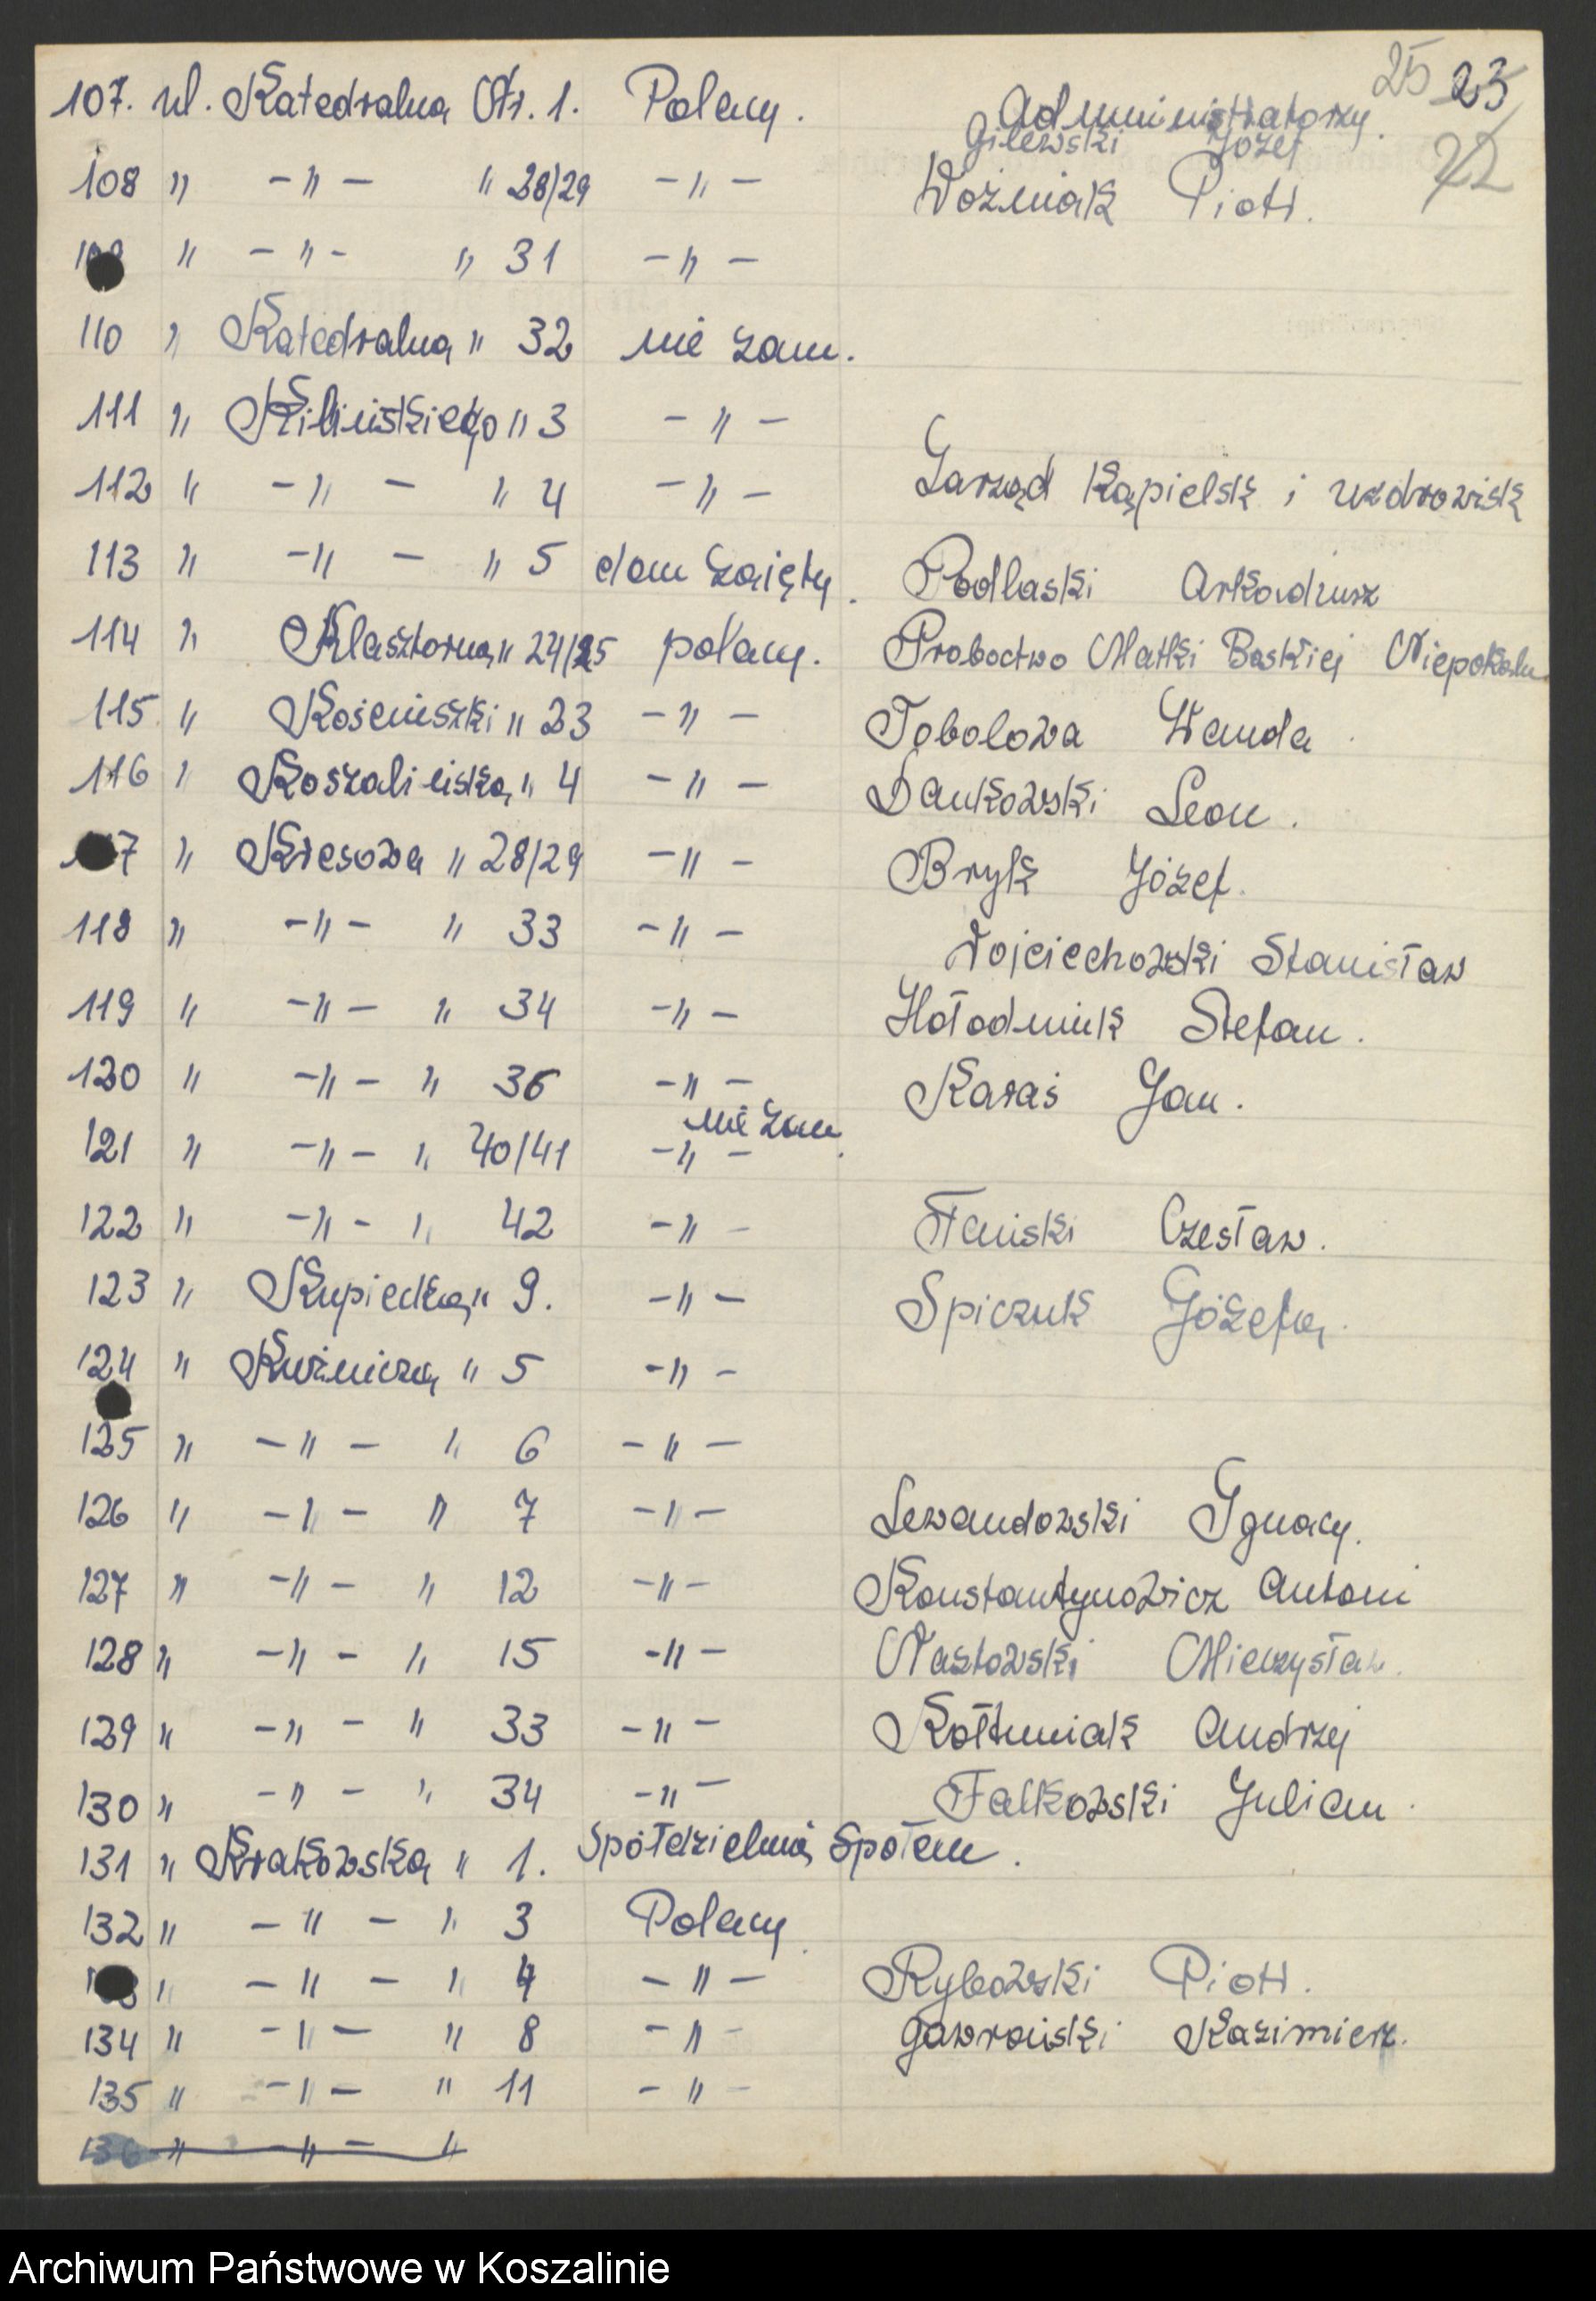 25 23
72
107. ul. Katedralna Nr. 1. Polacy. Administratorzy.
Gilewski Józef
108 " -"- " 28/29 -"- Woźniak Piotr.
109 " -"- " 31 -"-
110 " Katedralna " 32 nie zam.
111 " Kilińskiego " 3 -"-
112 " -"- " 4 -"- Zarząd Kąpielsk i uzdrowisk
113 " -"- " 5 dom zajęty. Podlaski Arkadiusz
114 " Klasztorna " 24/25 polacy. Proboctwo Matki Boskiej Niepokaln
115 " Kościuszki " 23 -"- Tobolowa Wanda
116 " Koszalińska " 4 -"- Dankowski Leon.
117 " Kresowa " 28/29 -"- Bryk Józef.
118 " -"- " 33 -"- Wojciechowski Stanisław
119 " -"- " 34 -"- Hołodniuk Stefan.
120 " -"- " 36 -"- Karaś Jan.
nie zam.
121 " -"- " 40/41 -"-
122 " -"- " 42 -"- Flański Czesław.
123 " Kupiecka " 9. -"- Spiczuk Józefa.
124 " Kuźnicza " 5 -"-
125 " -"- " 6 -"-
126 " -"- " 7 -"- Lewandowski Ignacy.
127 " -"- " 12 -"- Konstantynowicz Antoni
128 " -"- " 15 -"- Nastowski Mieczysław.
129 " -"- " 33 -"- Kołtuniak Andrzej
130 " -"- " 34 -"- Falkowski Julian.
131 " Krakowska " 1. Spółdzielnia Społem.
132 " -"- " 3 Polacy.
133 " -"- " 4 -"- Rybowski Piotr.
134 " -"- " 8 -"- Gawroński Kazimierz.
135 " -"- " 11 -"-
136 " -"- "
Archiwum Państwowe w Koszalinie